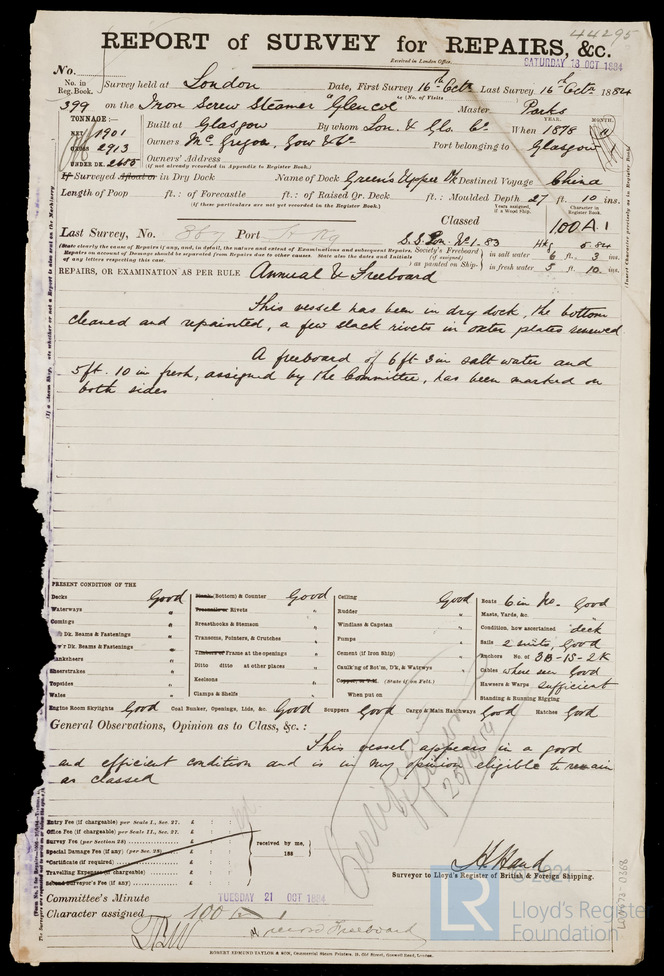 44295
REPORT of SURVEY for REPAIRS, &c.
Received in London Office, SATURDAY 18 OCT 1884
No.
No. in Reg. Book. Survey held at London Date, First Survey 16th Octr Last Survey 16th Octr 1884
(No. of Visits
399 on the Iron Screw Steamer "Glencoe" Master Parks
TONNAGE:— YEAR. MONTH.
NET 1901 Built at Glasgow By whom Lon. & Gls. Co. When 1878
GROSS 2913 Owners McGregor, Gow & Co Port belonging to Glasgow
UNDER DK. 2685 Owners' Address
(If not already recorded in Appendix to Register Book.)
If Surveyed afloat or in Dry Dock Name of Dock Green's Upper Dk Destined Voyage China
Length of Poop ft.: of Forecastle ft.: of Raised Qr. Deck ft.: Moulded Depth 27 ft. 10 ins.
(If these particulars are not yet recorded in the Register Book.)
Years assigned, if a Wood Ship. Character in Register Book.
Classed 100A.1
Last Survey, No. 367 Port S.S. Lon. No.1-83 Hkg 5.84
(State clearly the cause of Repairs if any, and, in detail, the nature and extent of Examinations and subsequent Repairs. Society's Freeboard in salt water 6 ft. 3 ins.
Repairs on account of Damage should be separated from Repairs due to other causes. State also the dates and Initials (if assigned)
of any letters respecting this case. as painted on Ship- in fresh water 5 ft. 10 ins.
REPAIRS, OR EXAMINATION AS PER RULE Annual & Freeboard
This vessel has been in dry dock, the bottom
cleaned and repainted, a few slack rivets in outer plates renewed
A freeboard of 6ft 3 in salt water and
5ft. 10 in fresh, assigned by the Committee, has been marked on
both sides
PRESENT CONDITION OF THE
Decks Good Plank (Bottom) & Counter Good Ceiling Good Boats 6 in No. Good
Waterways " Treenails or Rivets " Rudder " Masts, Yards, &c. "
Comings " Breasthooks & Stemson " Windlass & Capstan " Condition, how ascertained deck
Dk. Beams & Fastenings " Transoms, Pointers, & Crutches " Pumps " Sails 2 suits, Good
Dk. Beams & Fastenings " Timbers or Frame at the openings " Cement (if Iron Ship) " Anchors No. of 3B-1S-2K
Ditto ditto at other places " Caulking of Bot'm, D'k, & Watrwys " Cables where seen Good
Sheerstrakes " Keelsons " (State if on Felt.) Hawsers & Warps Sufficient
Topsides " Clamps & Shelfs " When put on Standing & Running Rigging
Wales "
Engine Room Skylights Good Coal Bunker, Openings, Lids, &c. Good Scuppers Good Cargo & Main Hatchways Good Hatches Good
General Observations, Opinion as to Class, &c. :
This vessel appears in a good
and efficient condition and is in my opinion eligible to remain
as classed
Certificate
Entry Fee (if chargeable) per Scale I., Sec. 27. £ : :
Office Fee (if chargeable) per Scale II., Sec. 27. £ : :
Survey Fee (per Section 28) £ : : received by me,
Special Damage Fee (if any) (per Sec. 28) £ : : 188
*Certificate (if required) £ : :
Travelling Expenses (if chargeable) £ : :
Second Surveyor's Fee (if any) £ : :
Surveyor to Lloyd's Register of British & Foreign Shipping.
Committee's Minute TUESDAY 21 OCT 1884
Character assigned 100 A 1
record Freeboard
ROBERT EDMUND TAYLOR & SON, Commercial Steam Printers, 19, Old Street, Goswell Road, London.
© 2021
LR
Lloyd's Register
Foundation